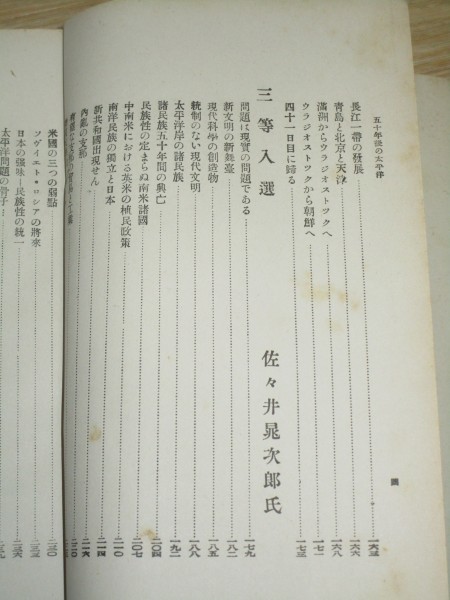 五十年後の太平洋
長江一帶の發展……一六三
青島と北京と天津……一六六
滿洲からウラジオストツクへ……一六八
ウラジオストツクから朝鮮へ……一七一
四十一日目に歸る……一七三
三等入選 佐々井晁次郎氏
問題は現實の問題である……一七九
新文明の新舞臺……一八二
現代科學の創造物……一八五
統制のない現代文明……一八八
太平洋岸の諸民族……一九二
諸民族五十年間の興亡……二〇四
民族性の定まらぬ南米諸國……二〇七
中南米における北米の植民政策……二一〇
南洋民族の獨立と日本……二一四
新共和國出現せん……二一六
內亂の支那……二二〇
米國の三つの弱點……二三〇
ソヴイエト・ロシアの將來……二三三
日本の强味―民族性の統一……二三六
太平洋問題の骨子